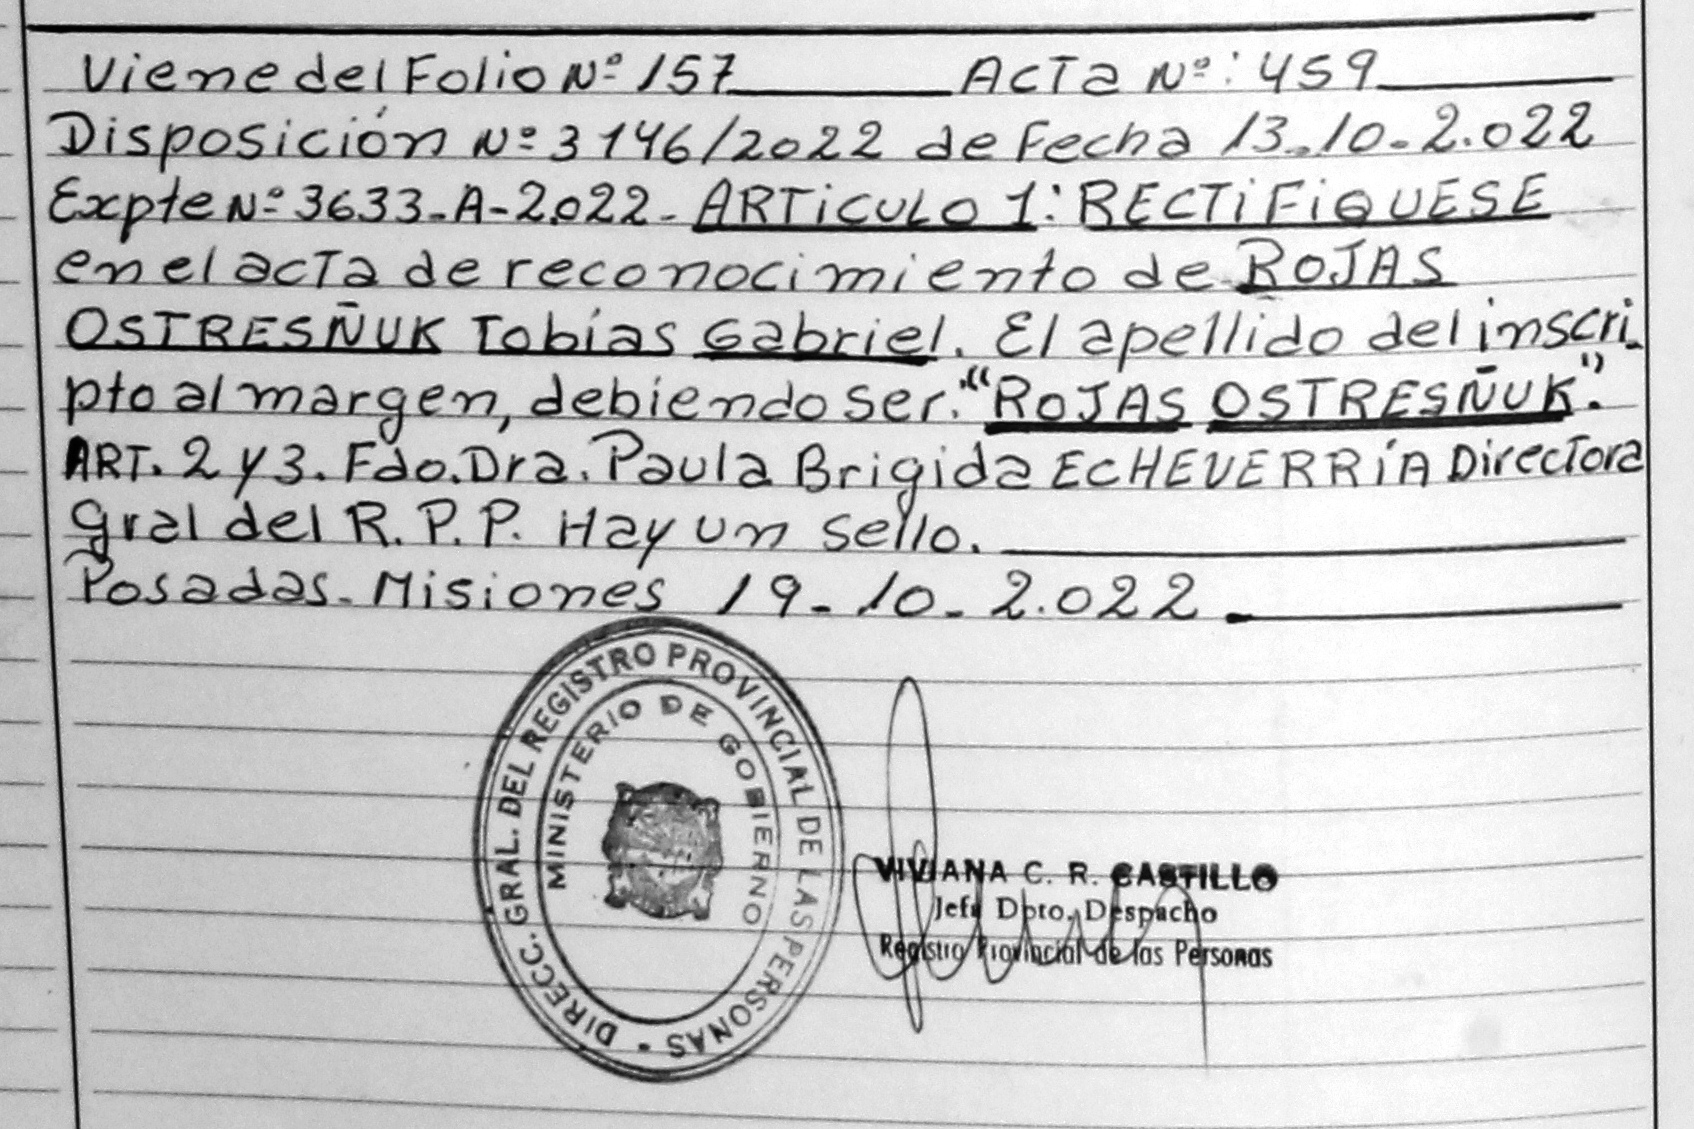 Viene del Folio Nº 157 Acta Nº: 459
Disposición Nº 3146/2022 de Fecha 13-10-2.022
Expte Nº 3633-A-2.022- ARTiCULO 1: RECTiFiQUESE
en el acta de reconocimiento de ROJAS
OSTRESÑUK Tobías Gabriel. El apellido del inscri-
pto al margen, debiendo ser. "ROJAS OSTRESÑUK".
ART. 2 y 3. Fdo. Dra. Paula Brigida ECHEVERRíA Directora
Gral del R.P.P. Hay un sello.
Posadas-Misiones 19-10-2.022
DIRECC. GRAL. DEL REGISTRO PROVINCIAL DE LAS PERSONAS -
MINISTERIO DE GOBIERNO
VIVIANA C. R. CASTILLO
Jefa Dpto. Despacho
Registro Provincial de las Personas